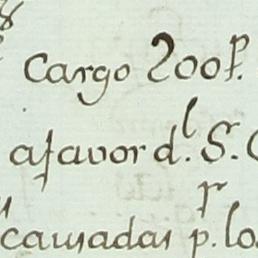 Cargo 200p.
afavor d.l S.r
causadas p.r los